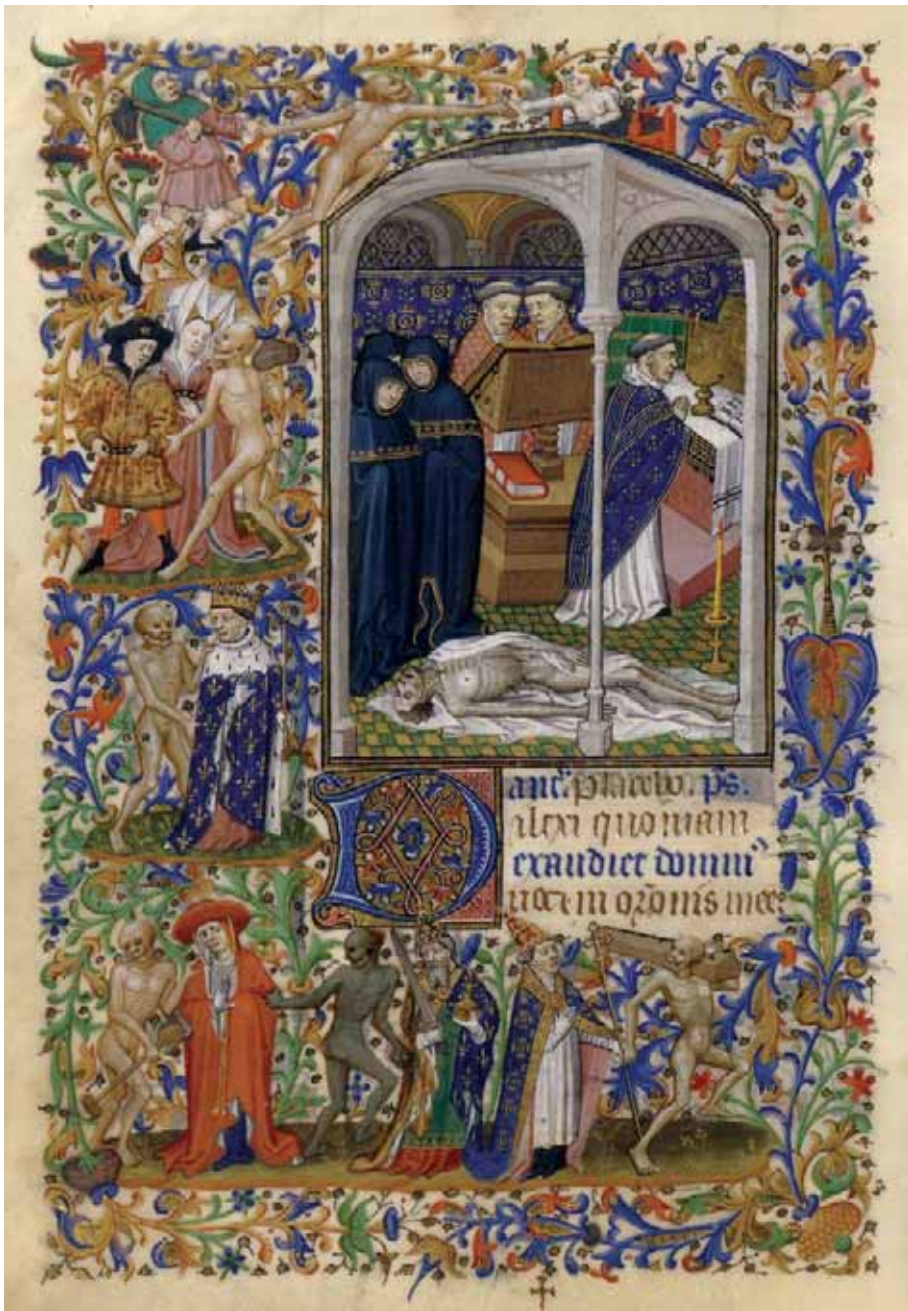 anť. Placebo. pš.
Dilexi quoniam
exaudiet domin⁹
vocem orōnis mee.